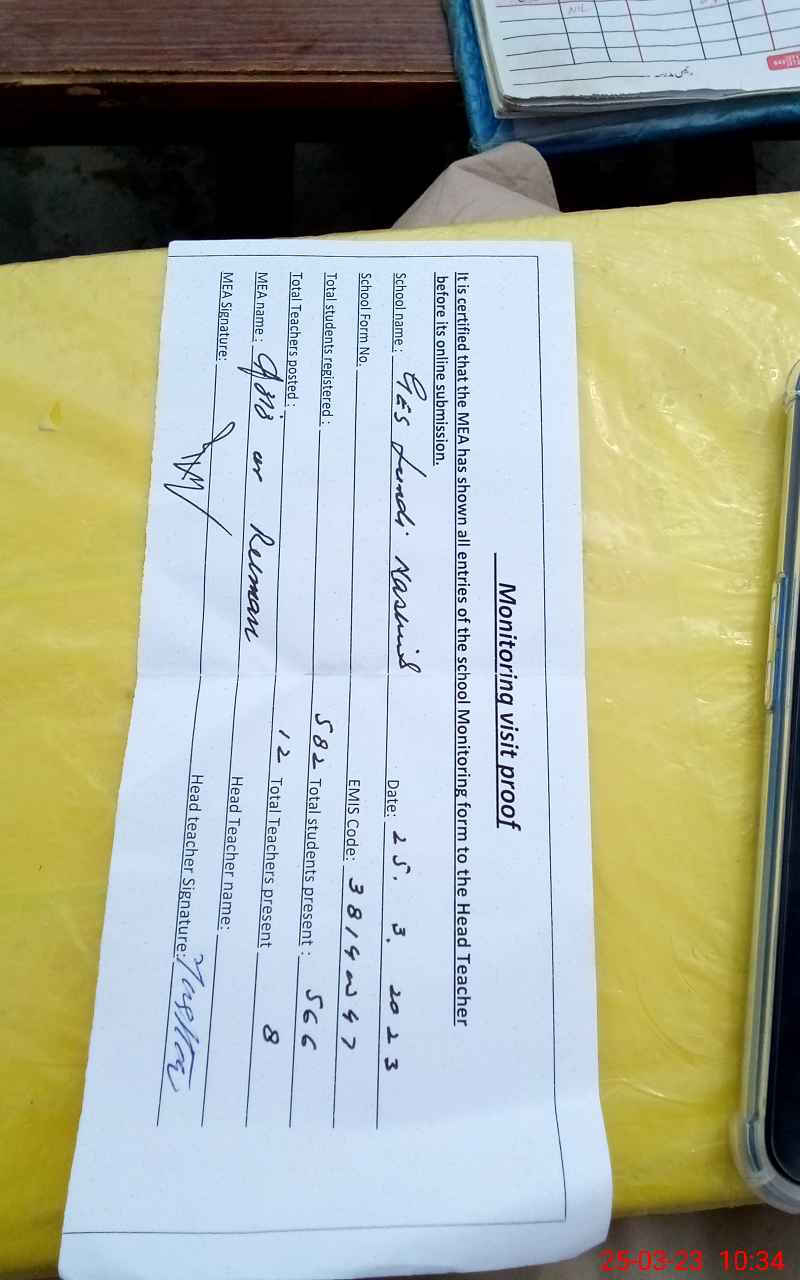 Monitoring visit proof
It is certified that the MEA has shown all entries of the school Monitoring form to the Head Teacher
before its online submission.
School name : GES Lundi Date: 25. 3. 2023
School Form No. EMIS Code:
Total students registered : 582 Total students present : 566
Total Teachers posted : 12 Total Teachers present 8
MEA name : ur Rehman Head Teacher name:
MEA Signature: Head teacher Signature:
NIL
25-03-23 10:34